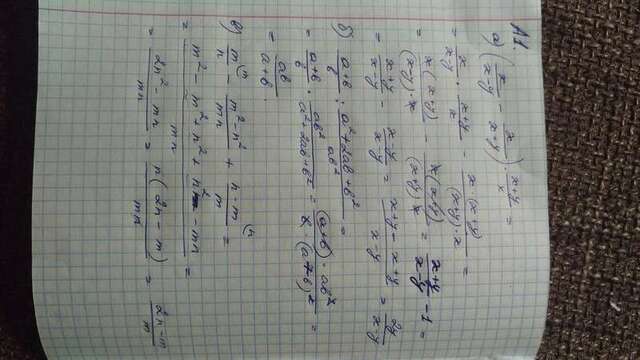 А1.
а) (x/(x-y) - x/(x+y)) · (x+y)/x =
= x/(x-y) · (x+y)/x - x·(x+y)/((x+y)·x) =
= x(x+y)/((x-y)·x) - x(x+y)/((x+y)x) = (x+y)/(x-y) - 1 =
= (x+y)/(x-y) - (x-y)/(x-y) = (x+y-x+y)/(x-y) = 2y/(x-y)
б) (a+b)/b : (a²+2ab+b²)/(ab²) =
= (a+b)/b · ab²/(a²+2ab+b²) = (a+b)·ab²/(b·(a+b)²) =
= ab/(a+b).
в) m/n - (m²-n²)/(mn) + (n-m)/m =
= (m²-m²+n²+n²-mn)/(mn) =
= (2n²-mn)/(mn) = n(2n-m)/(mn) = (2n-m)/m